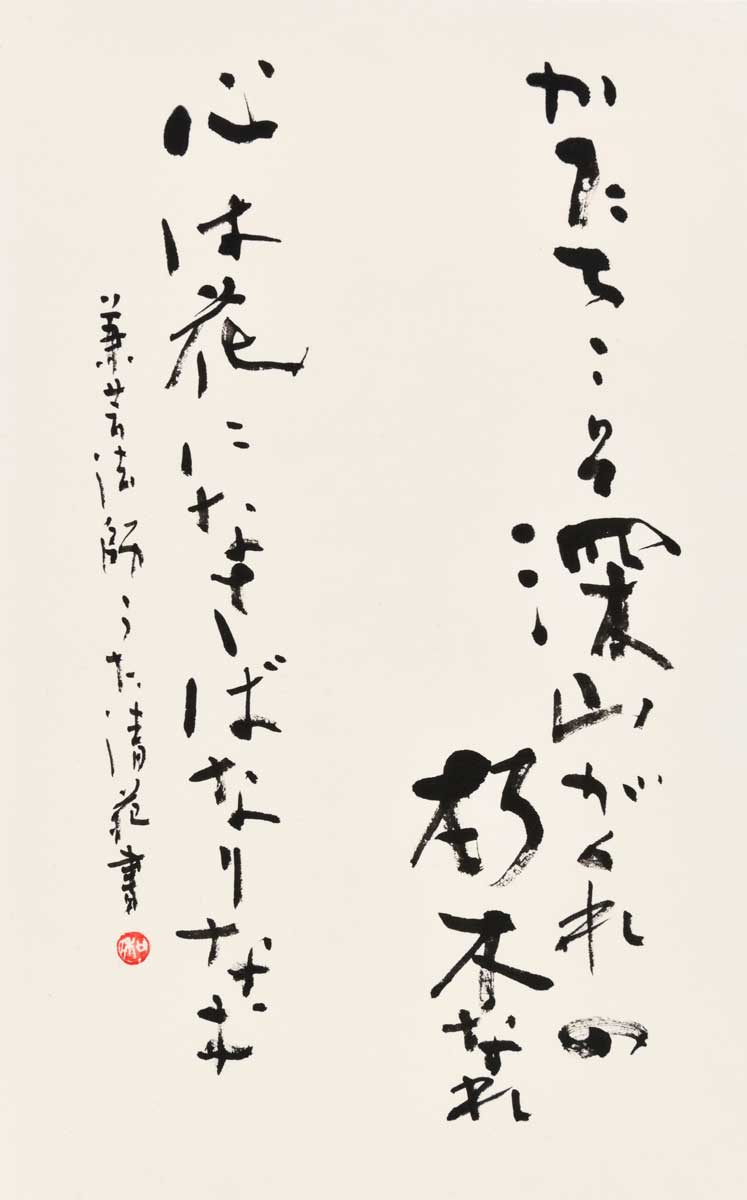 かたちこそ深山がくれの
朽木なれ
心は花になさばなりなむ
兼芸法師うた清書